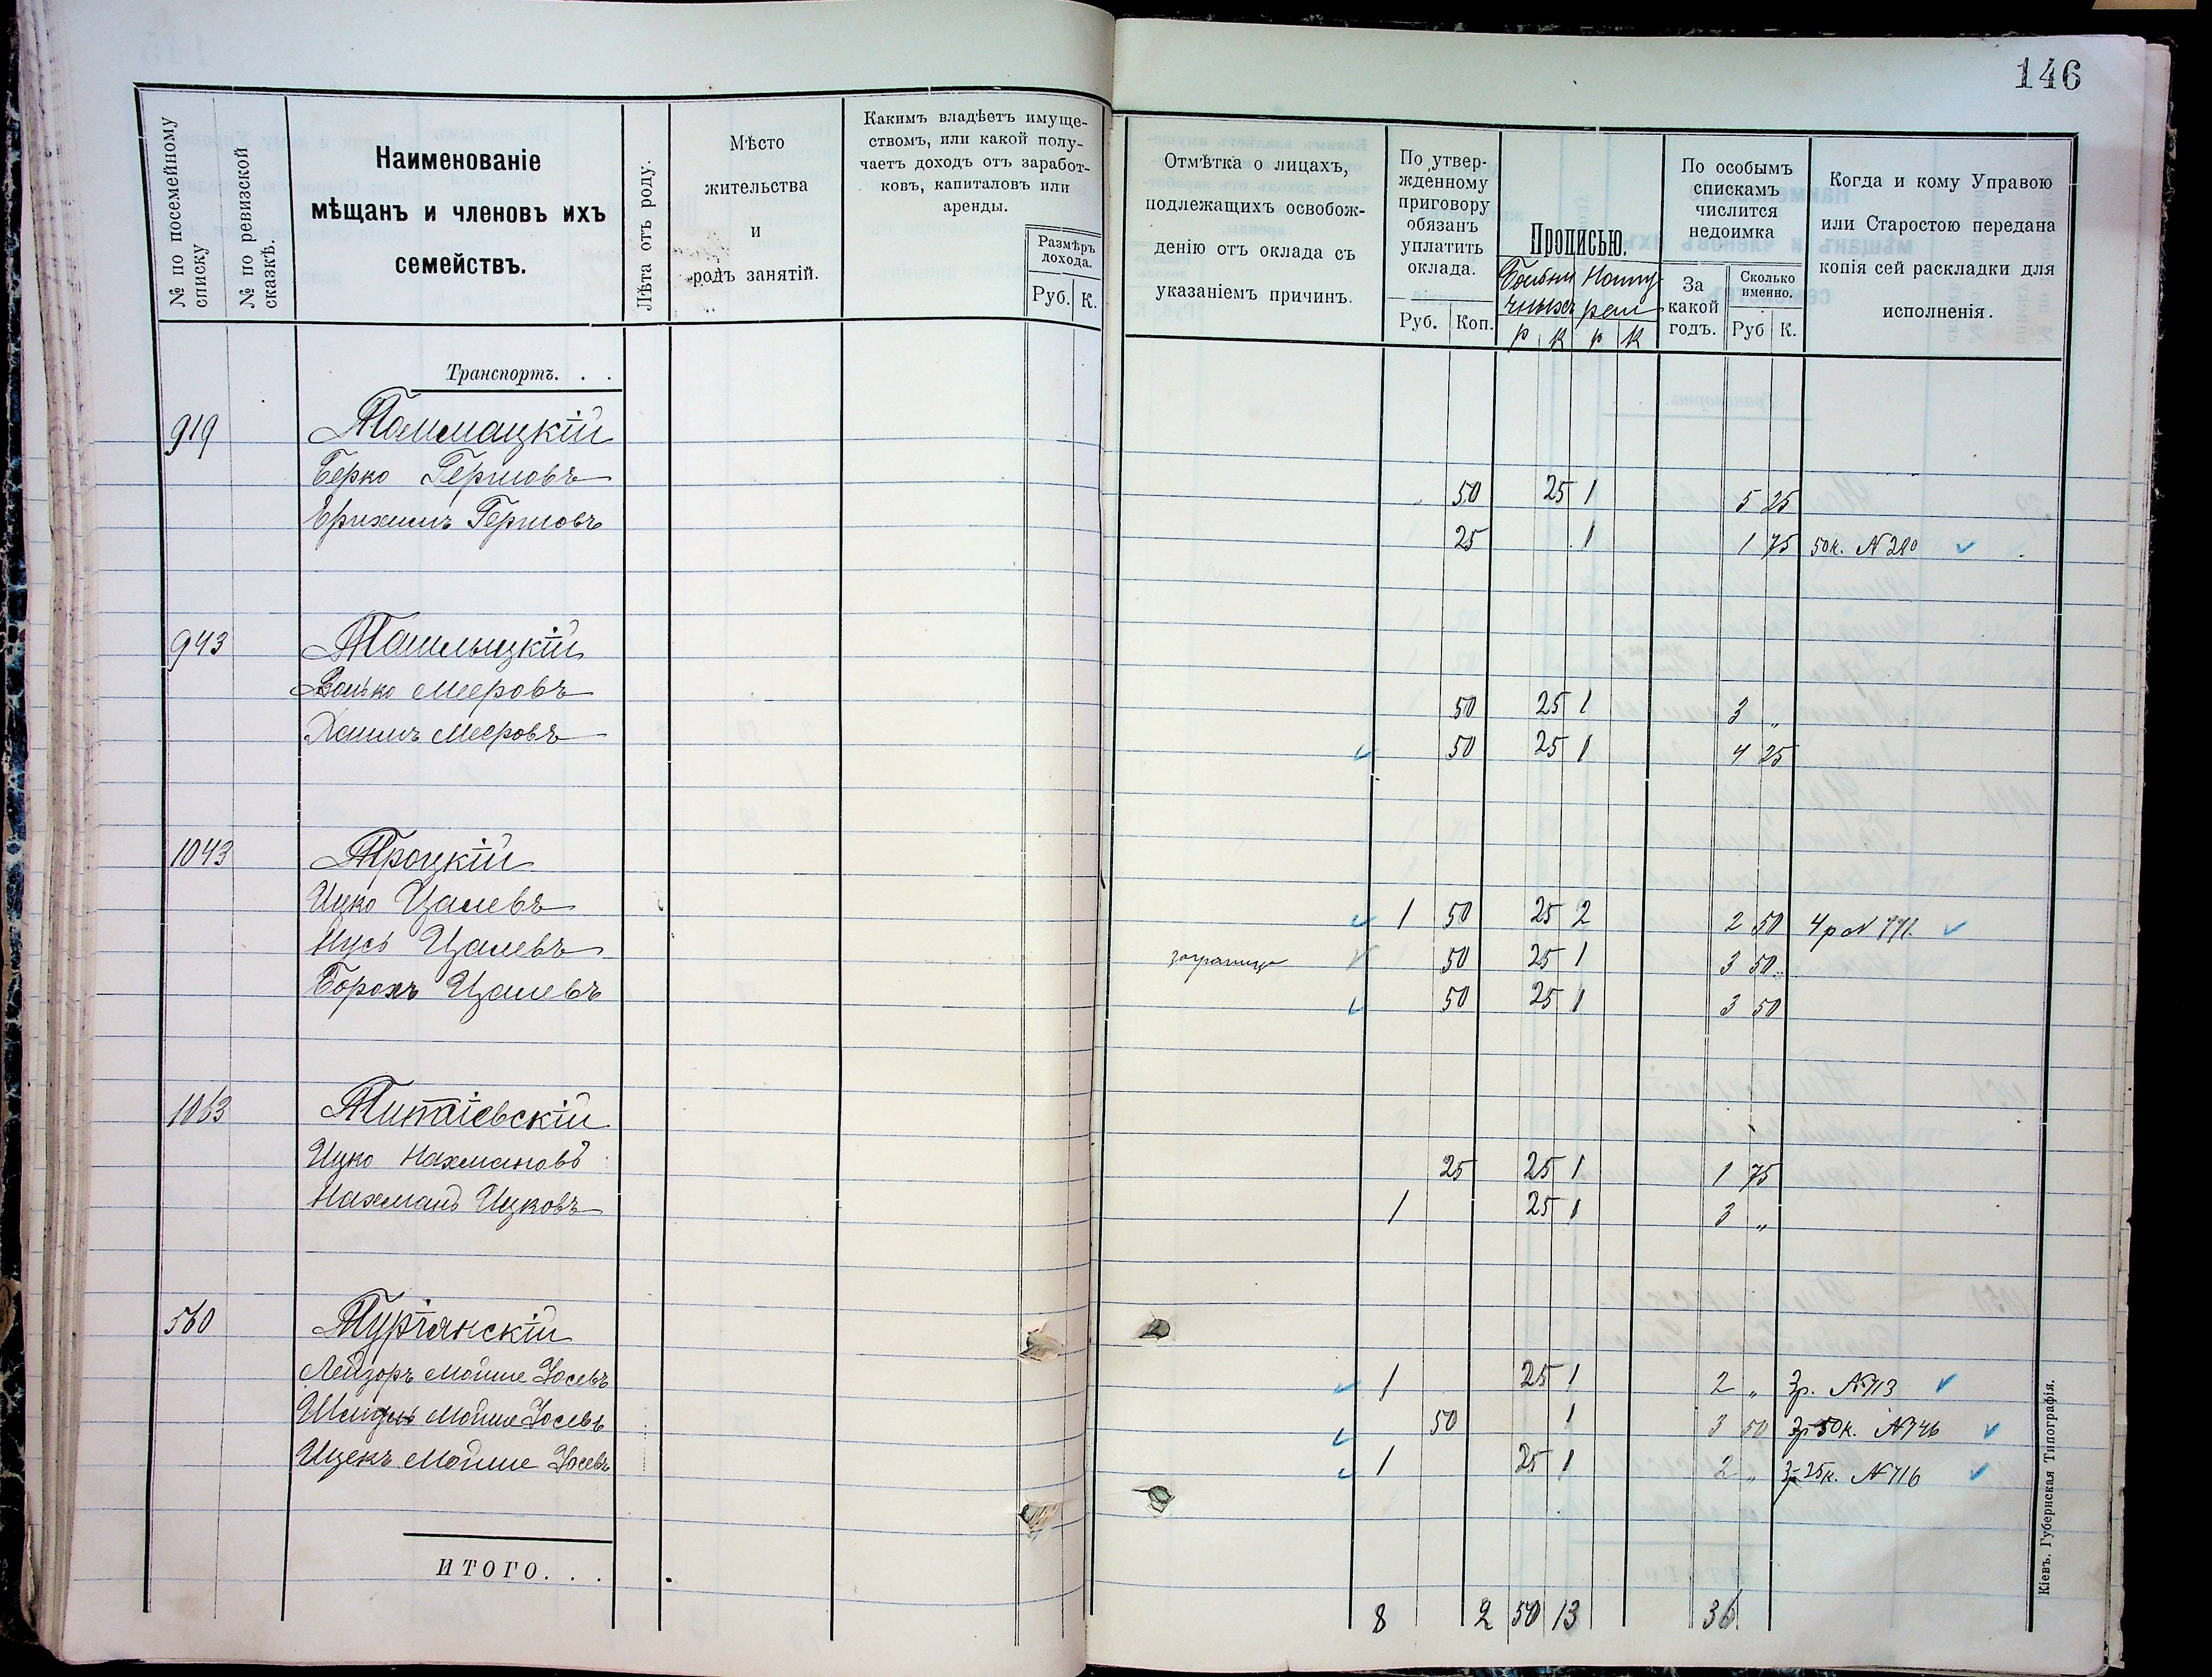 146
№ по посемейному списку
№ по ревизской сказкѣ.
Наименованіе
мѣщанъ и членовъ ихъ
семействъ.
Лѣта отъ роду.
Мѣсто
жительства
и
родъ занятій.
Какимъ владѣетъ имуще-
ствомъ, или какой полу-
чаетъ доходъ отъ заработ-
ковъ, капиталовъ или
аренды.
Размѣръ
дохода.
Руб. К.
Отмѣтка о лицахъ,
подлежащихъ освобож-
денію отъ оклада съ
указаніемъ причинъ.
По утвер-
жденному
приговору
обязанъ
уплатить
оклада.
Руб. Коп.
Прописью.
р к р к
По особымъ
спискамъ
числится
недоимка
За
какой
годъ.
Сколько
именно.
Руб К.
Когда и кому Управою
или Старостою передана
копія сей раскладки для
исполненія.
Транспортъ. . .
919 Толмацкій
Берко Гершовъ 50 25 1 5 25
Фроимъ Гершовъ 25 1 1 75 50к. №280
943 Ташлыцкій
Волько Мееровъ 50 25 1 3 „
Хаимъ Мееровъ 50 25 1 4 25
1043 Троцкій
Ицко Цалевъ 1 50 25 2 2 50 4р № 771.
Нусь Цалевъ заграницу 50 25 1 3 50
Борохъ Цалевъ 50 25 1 3 50
1063 Титіевскій
Ицко Нахмановъ 25 25 1 1 75
Нахманъ Ицковъ 1 25 1 3 „
560 Туріанскій
Лейзоръ Мойше Іосевъ 1 25 1 2 „ 3р. №713
Мойше Іосевъ 50 1 3 50 3р 50к. №746
Ицекъ Мойше Іосевъ 1 25 1 2 „ 3р 25к. №716
ИТОГО. . .
8 2 50 13 36
Кіевъ. Губернская Типографія.